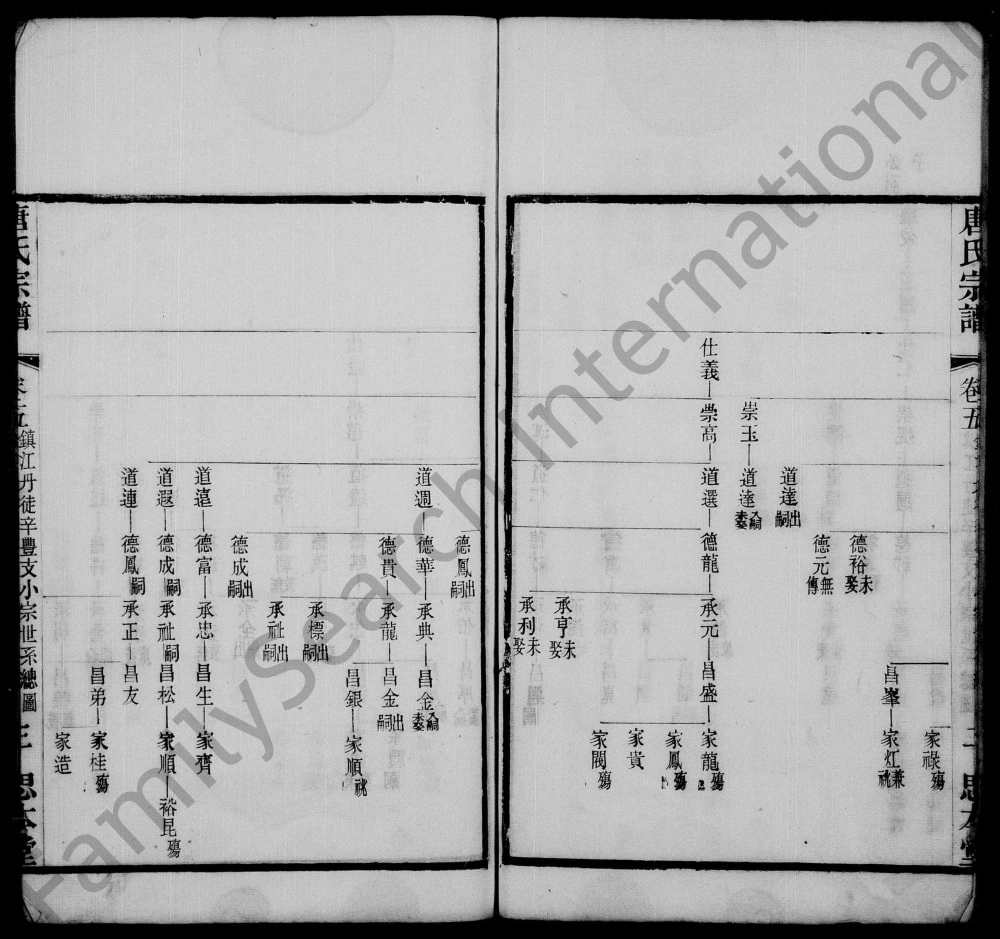 唐氏宗譜
卷五
二
思本堂
家祿殤
昌峯—家灯兼祧
德裕未娶
德元無傳
道達出嗣
崇玉—道達入嗣
仕義—崇高—道選—德龍—承元—昌盛—家龍殤
家鳳殤
家貴
家閥殤
承亨未娶
承利未娶
德鳳出嗣
道週—德華—承典—昌金入嗣
德貴—承龍—昌金出嗣
昌銀—家順祧
承標出嗣
承祉出嗣
德成出嗣
道遠—德富—承忠—昌生—家齊
道遐—德成嗣—承祉嗣—昌松—家順—裕昆殤
道連—德鳳嗣—承正—昌友
昌弟—家桂殤
家造
唐氏宗譜
卷五
鎮江丹徒辛豐支小宗世系總圖
三
思本堂
FamilySearch International